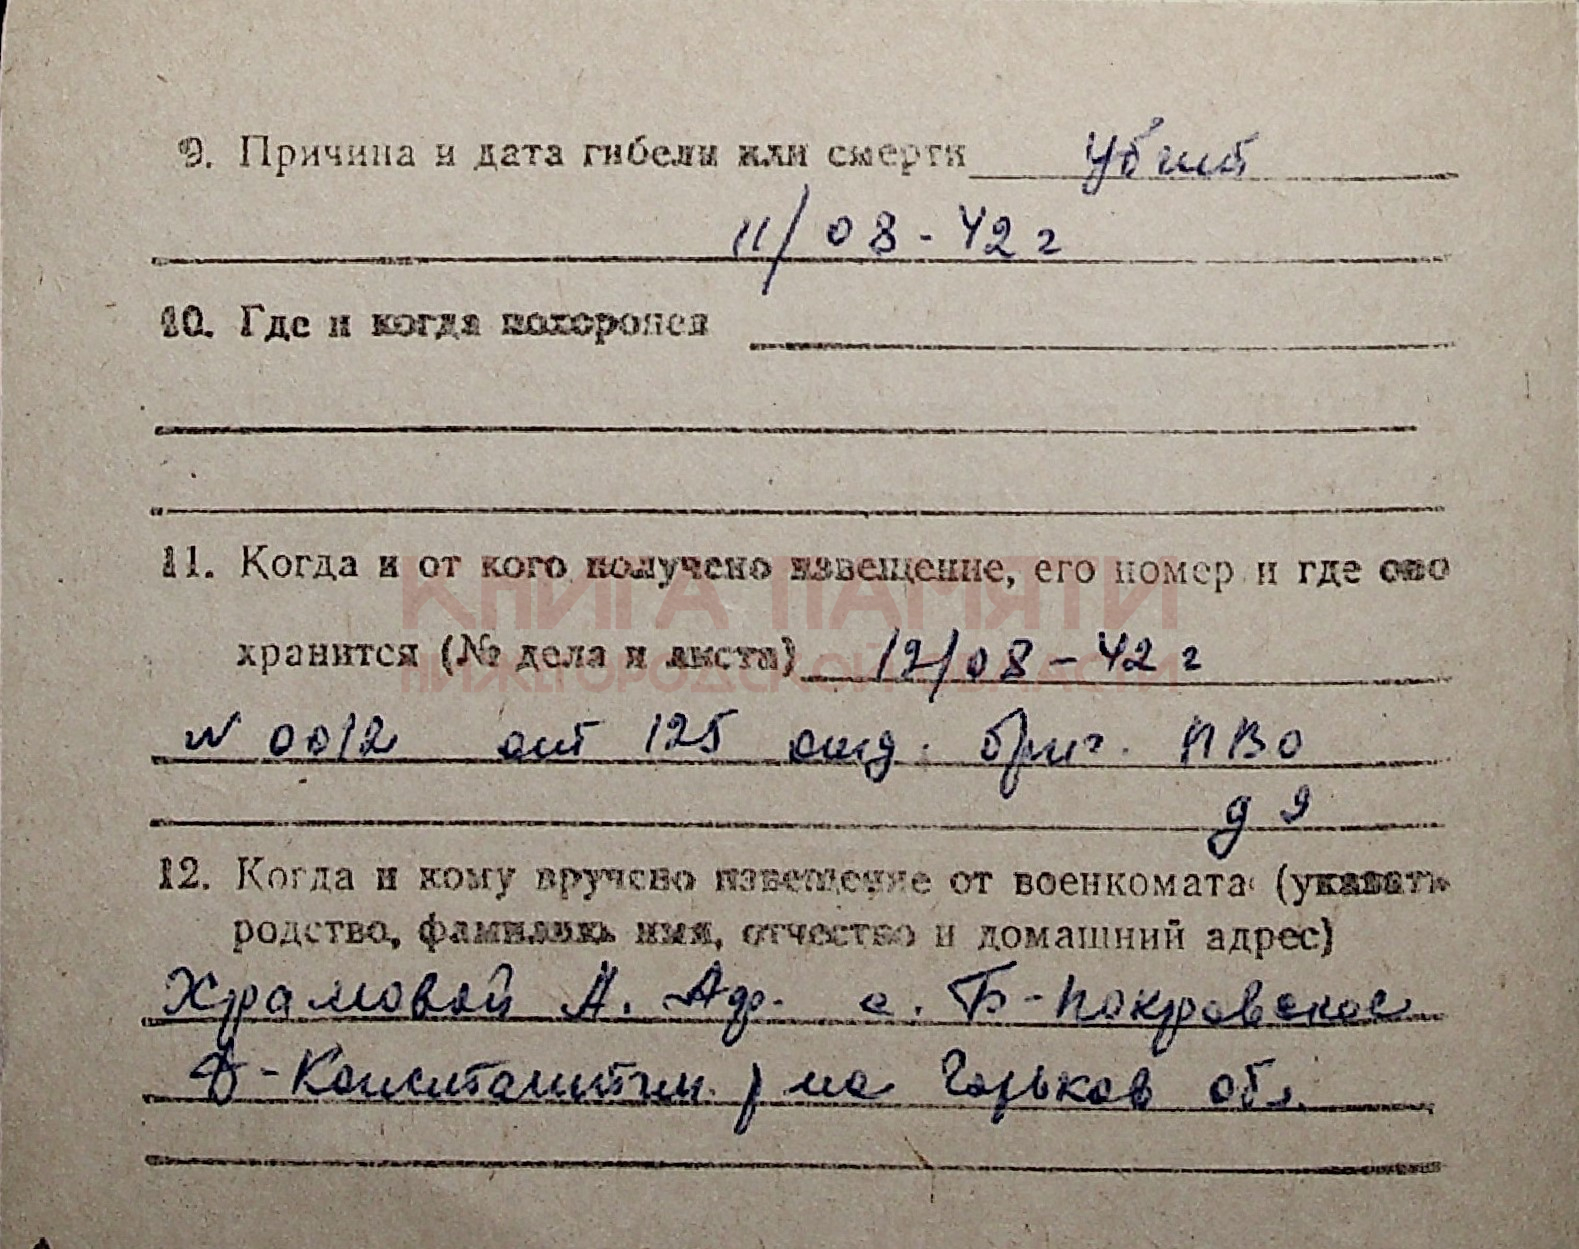 9. Причина и дата гибели или смерти убит
11/08-42 г
10. Где и когда похоронен
11. Когда и от кого получено извещение, его номер и где оно
КНИГА ПАМЯТИ
хранится (№ дела и листа) 12/08-42 г
НИЖЕГОРОДСКОЙ ОБЛАСТИ
N 0012 от 125 отд. бриг. ПВО
д 9
12. Когда и кому вручено извещение от военкомата (указать
родство, фамилию, имя, отчество и домашний адрес)
Храмовой А. Аф. с. Б-Покровское
Д-Константин. р-на Горьков обл.